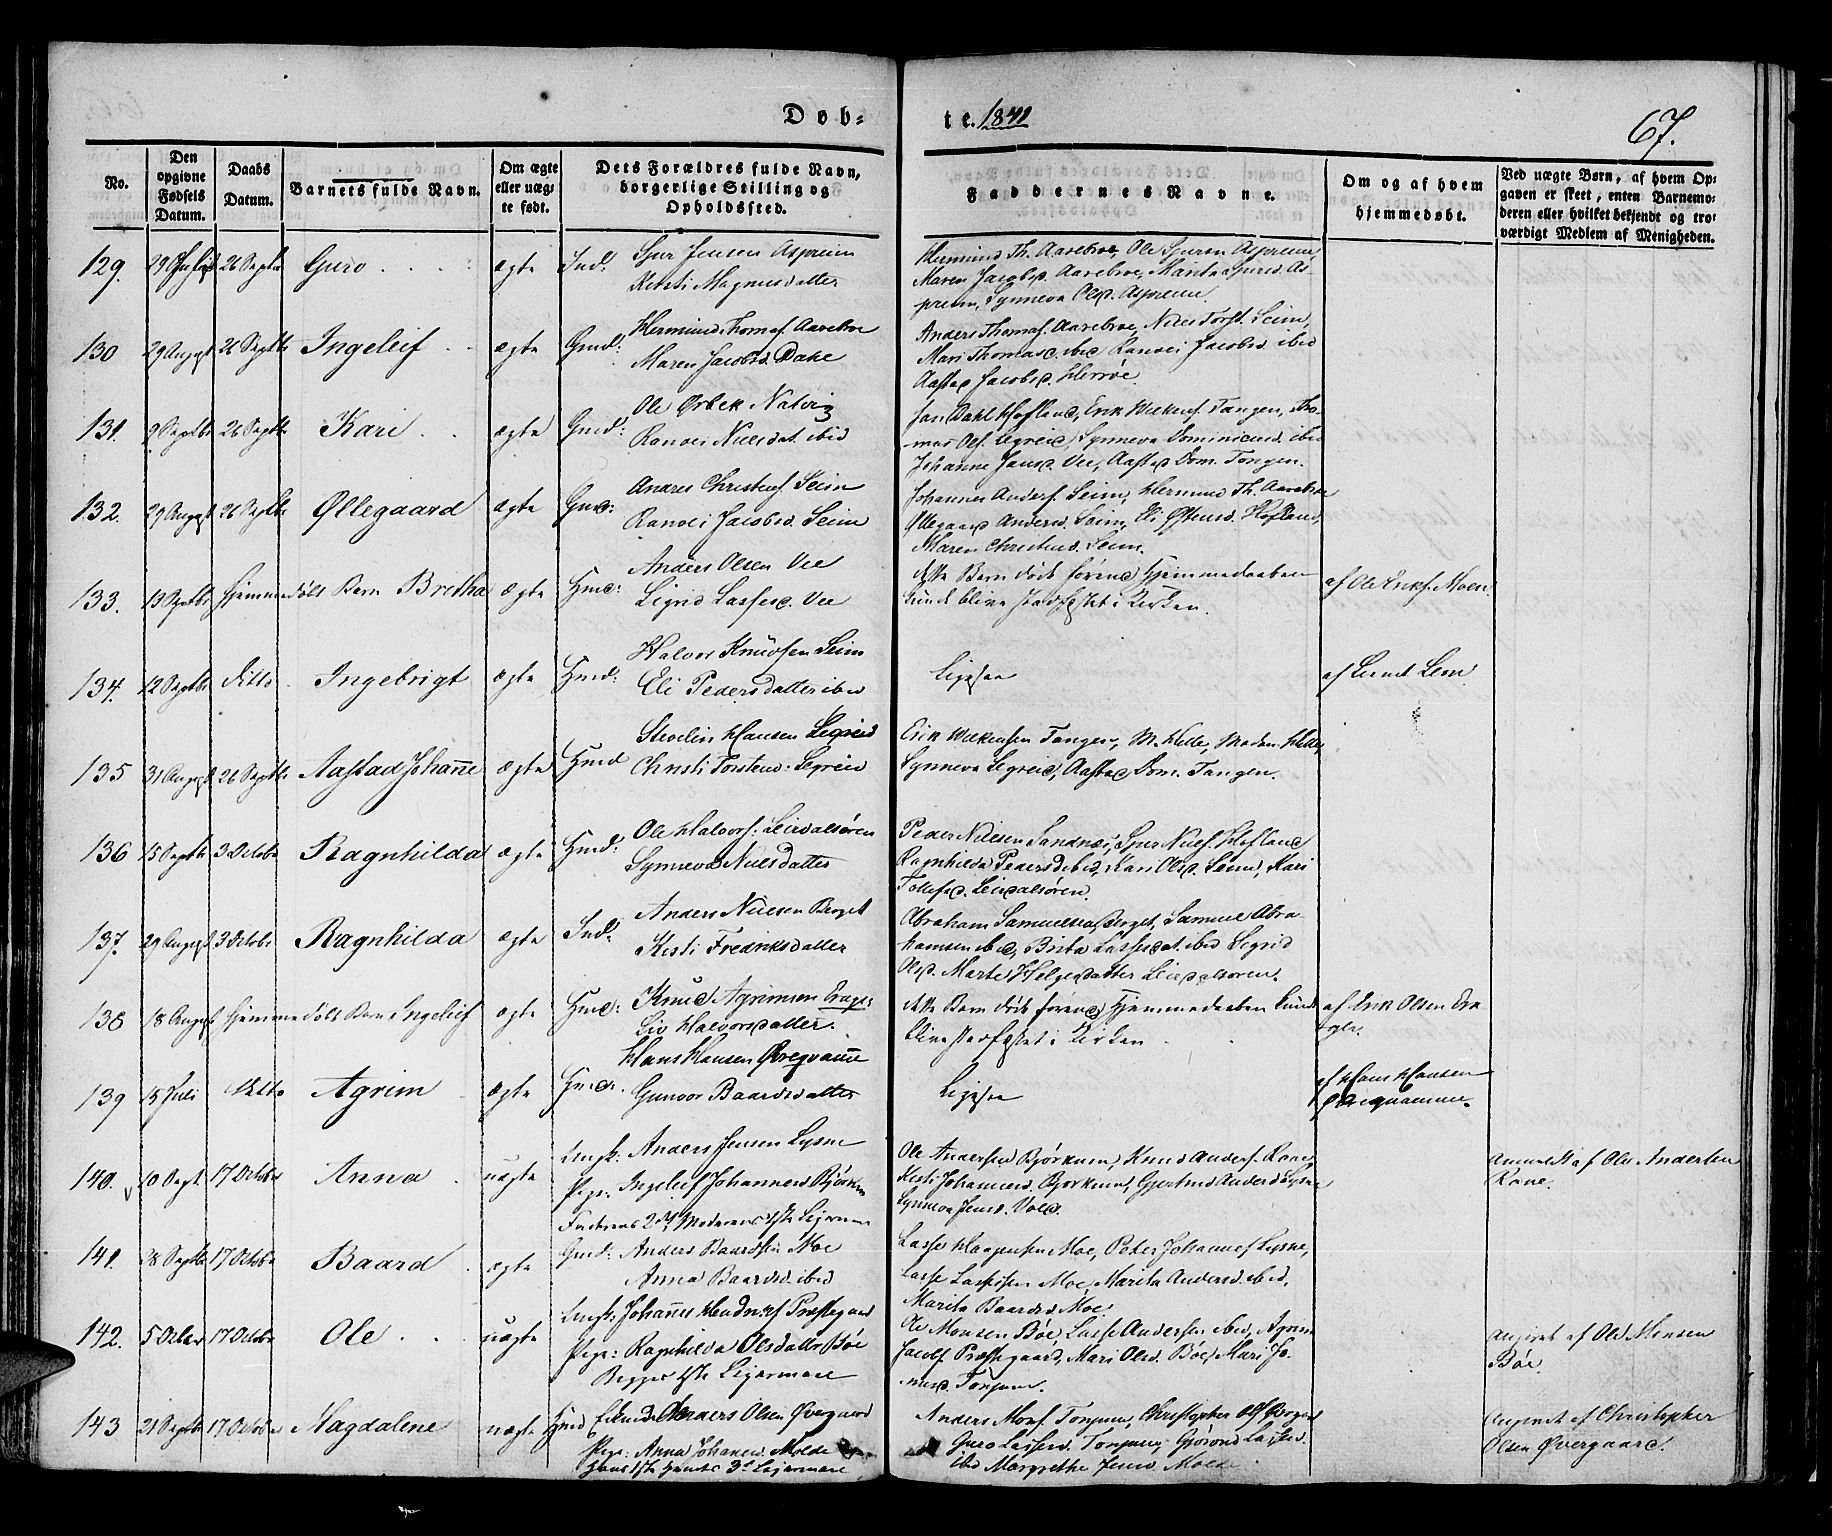 Døb- te. 1841
67.
No.
Den opgivne Fødsels Datum.
Daabs Datum.
Barnets fulde Navn.
Om ægte eller uæg- te født.
Dets Forældres fulde Navn, borgerlige Stilling og Opholdssted.
Faddernes Navne.
Om og af hvem hjemmedøbt.
Ved uægte Børn, af hvem Op- gaven er skeet, enten Barnemo- deren eller hvilket bekjendt og tro- værdigt Medlem af Menigheden.
129. 26 Septbr Guro ægte Ind: Sjur Jensen Aspreim
Kirsti Magnusdatter
Hermund Th. Aarebroe, Ole Sjursen Aspreim
Maren Jacobsd. Aarebroe, Marita Sjursd. As-
preim, Synneva Olsd. Aspreim.
130 29 August 26 Septbr Ingeleif ægte Gmd: Hermund Thomas. Aarebroe
Maren Jacobsd. Dahe
Anders Thomas. Aarebroe, Niels Torst. Seim,
Mari Thomasd. ibid Ranvei Jacobsd ibid
Aasta Jacobsd.
131. 9 Septbr 26 Septbr Kari ægte Gmd: Ole Ørbek Natvig
Ranvei Nielsdat. ibid
Jan Dahl Hofland, Erik Wilkens. Tangen, Tho-
mas Ols. Legreid, Synneva Dominicusd. ibid
Johanne Jansd. Vee, Aasta Dom. Tangen.
132. 29 August 26 Septbr Øllegaard ægte Gmd: Andres Christens. Seim
Ranvei Jacobsd. Seim
Johannes Anders. Seim, Hermund Th. Aarebroe
Øllegaard Andersd. Seim, Eli Østensd. Hofland,
Maren Christensd. Seim.
133. 13 Septbr Hjemmedøbt Barn Bretha ægte Hmd: Anders Olsen Vee
Sigrid Lassesd. Vee
dette Barn døde førend Hjemmedaaben
kunde blive stadfæstet i Kirken.
af Ole Eriks. Moen.
134. 12 Septbr ditto Ingebrigt ægte Hmd: Halvor Knudsen Seim
Eli Pedersdatter ibid
Ligesaa
135 31 August 26 Septbr Aastad Johanne ægte Hmd Hansen Legreid
Christi Torstensd. Legreid
Erik Wilkensen Tangen, M. Helle, Madam Helle,
Synneva Legreid, Aasta Dom. Tangen.
136 15 Septbr 3 Octobr Ragnhilda ægte Hmd: Ole Halvors. Leirdalsøren
Synneva Nielsdatter
Peder Nielsen Sandnæs, Sjur Niels. Hofland
Ragnhilda Pedersd ibid, Kari Olsd. Seim, Kari
Tollefsd. Leirdalsøren.
137. 29 August 3 Octobr Ragnhilda ægte Ind: Anders Nielsen Berget
Kristi Fredriksdatter
Abraham Samuelsen Berget, Samuel Abra-
hamsen ibid, Brita Lassesdat. ibid Sigrid
Olsd. Marte Helgesdatter Leirdalsøren.
138 18 August Hjemmedøbt Barn Ingeleif ægte Hmd: Knud Agrimsen
Liv Halvorsdatter.
dette Barn døde førend Hjemmedaaben kunde
blive stadfæstet i Kirken
af Erik Olsen
139 15 Juli ditto Agrim ægte Hmd. Hans Hansen Øvreqvamme
Gunvor Baardsdatter
Ligesaa
af Hans Hansen
Øvreqvamme.
140. 10 Sept 17 Octobr Anna uægte Ungk: Anders Jensen Lysne
Pige: Ingeleif Johannesd Bjørkum
Faderens 2det Moderens 1ste Lejermaal
Ole Andersen Bjørkum, Knud Anders. Rane
Kristi Johannesd. Bjørkum, Gjertrud Andersd Lysne
Synneva Jensd. Vold.
anmeldt af Ole Andersen
Rane.
141. 28 Septbr 17 Octobr Baard ægte Gmd: Anders Baardsen Moe
Anna Baardsd. ibid
Lasse Haagensen Moe, Peter Johannes. Lysne,
Lasse Lassesen Moe, Marita Andersd. ibid,
Marita Baardsd. Moe
142. 5 Octbr 17 Octobr Ole uægte Ungk: Johannes Præstegaard
Pige: Ragnhilda Olsdatter Bøe
Begges 1ste Lejermaal
Ole Monsen Bøe, Lasse Andersen ibid, Agrim
Jacobs. Præstegaard, Mari Olsd. Bøe, Mari Jo-
nusd. Tonjum.
angivet af Ole Monsen
Bøe.
143 21 Septbr 17 Octobr Magdalene uægte Anders Olsen Øvregaard
Pige: Anna Johannesd. Molde
3de Lejermaal
Anders Mons. Tonjum, Christopher Ols.
Guro Lassesd. Tonjum,
ibid Margrethe Jensd. Molde
angivet af Christopher
Olsen Øvregaard.